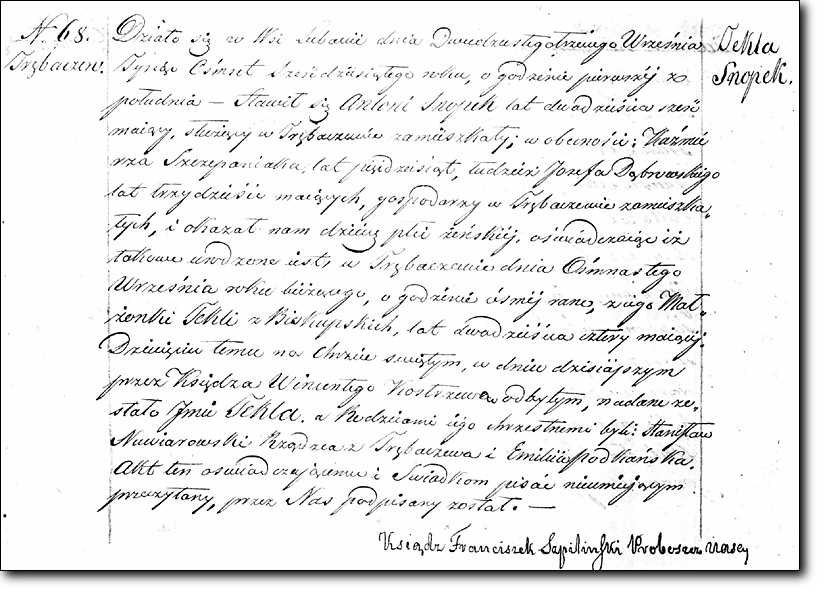 N. 68.
Trębaczew.
Działo się w Wsi Lubani dnia Dwudziestgo trzeciego Września
Tysiąc Ośmset Sześdziesiątego roku, o godzinie pierwszéj z
południa — Stawił się Antoni Snopek lat dwadzieścia sześć
maiący, służący w Trębaczewie zamieszkały; w obecności: Kaźmie
rza Szczepaniaka, lat pięćdziesiąt, tudzież Jozefa Dąbrowskiego
lat trzydzieści maiących, gospodarzy w Trębaczewie zamieszka-
łych, i okazał nam dziécię płci żeńskiéj, oświadczaiąc iż
takowe urodzone iest, w Trębaczewie dnia Ośmnastego
Września roku bieżącego, o godzinie ósméj rano, z iego Mał-
żonki Tekli z Biskupskich, lat dwadzieścia cztery maiącéj.
Dziecięciu temu na Chrzcie świętym, w dniu dzisiajszym
przez Księdza Wincentego Kostrzewę odbytym, nadane zo-
stało Jmie Tekla. a Rodzicami iego chrzestnemi byli: Stanisław
Nawiarowski Rządzca z Trębaczewa i Emiliia Podkańska.
Akt ten oświadczającemu i Świadkom pisać nieumiejącym
przeczytany, przez Nas podpisany został. —
Ksiądz Franciszek Szpiliński Proboszcz
Tekla
Snopek.